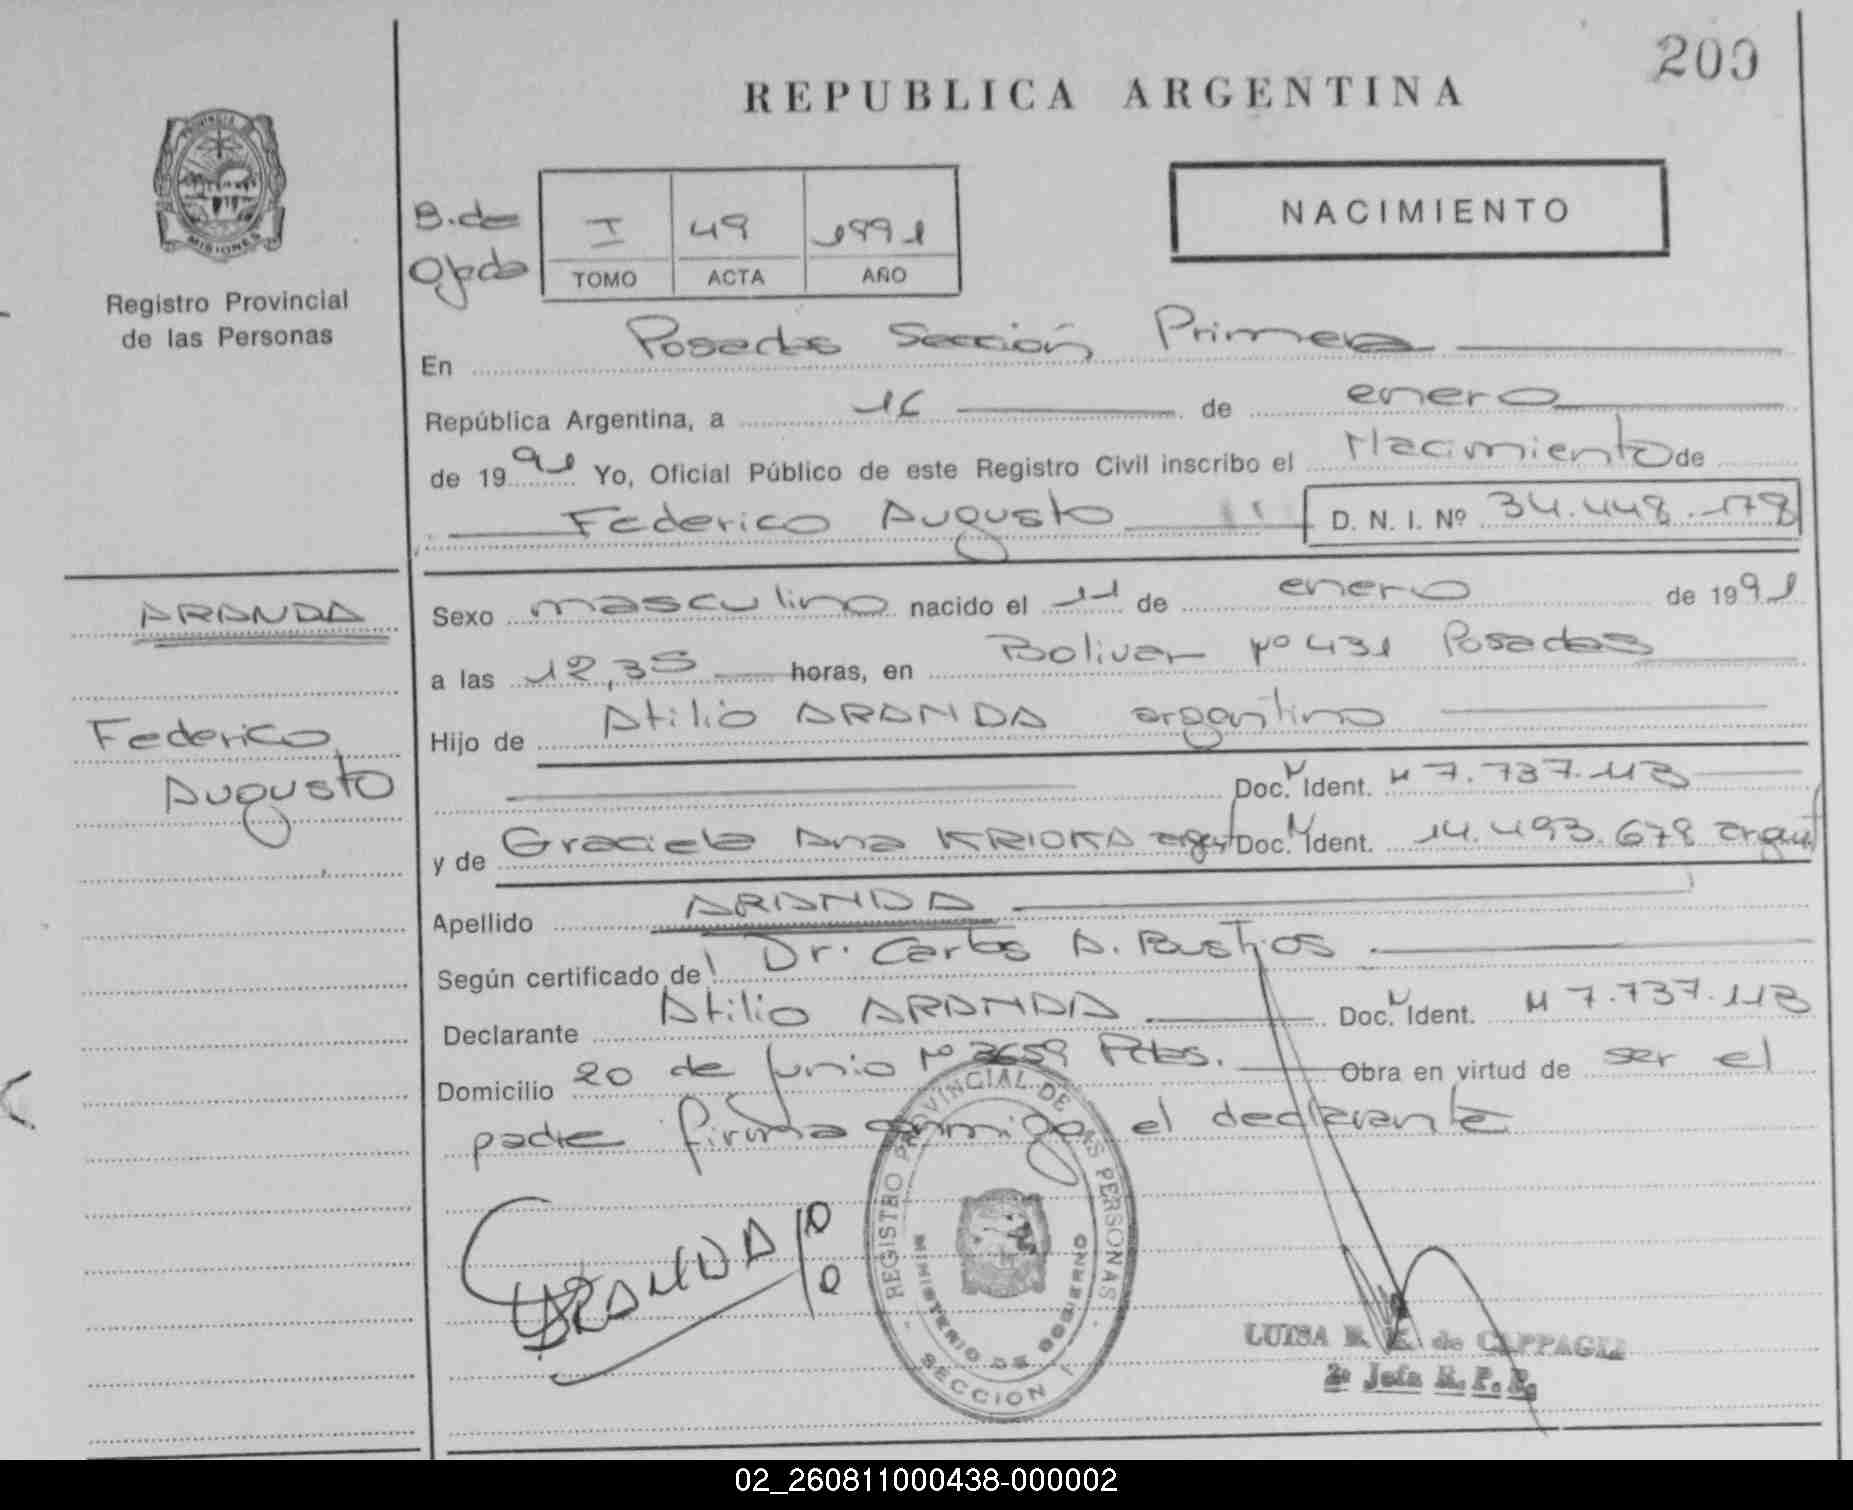 200
REPUBLICA ARGENTINA
PROVINCIA DE
MISIONES
Registro Provincial
de las Personas
B. de
Ojeda
I 49 1991
TOMO ACTA AÑO
NACIMIENTO
En Posadas Sección Primera
República Argentina, a 16 de enero
de 1991 Yo, Oficial Público de este Registro Civil inscribo el Nacimiento de
Federico Augusto D. N. I. Nº 34.448.178
ARANDA
Federico
Augusto
Sexo masculino nacido el 11 de enero de 1991
a las 12,35 horas, en Bolivar Nº 431 Posadas
Hijo de Atilio ARANDA argentino
Doc. N Ident. M 7.737.113
y de Graciela Ana KRIOKA argent Doc. N Ident. 14.493.678 argent
Apellido ARANDA
Según certificado de Dr. Carlos A. Bustos
Declarante Atilio ARANDA Doc. N Ident. M 7.737.113
Domicilio 20 de Junio Nº 3659 Pdas. Obra en virtud de ser el
padre firma conmigo el declarante
ARANDA
REGISTRO PROVINCIAL DE LAS PERSONAS
MINISTERIO DE GOBIERNO
SECCION 1
LUISA de CAPPAGLI
2ª Jefa R. P. P.
02_260811000438-000002